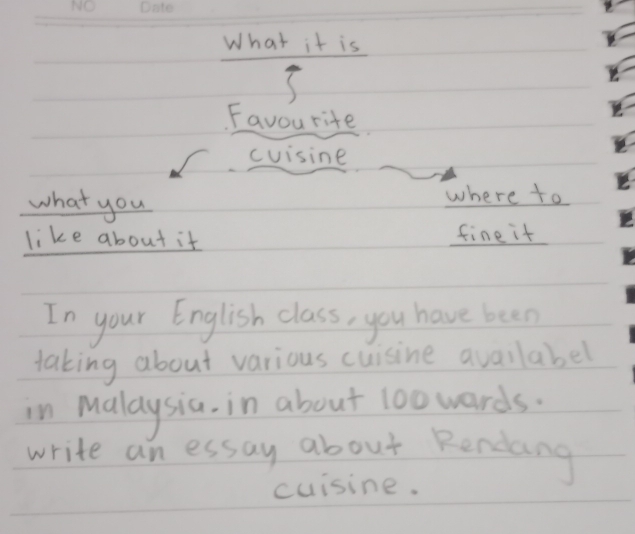 NO Date
What it is
Favourite
cuisine
what you
like about it
where to
fine it
In your English class, you have been
taking about various cuisine availabel
in Malaysia. in about 100 wards.
write an essay about Rendang
cuisine.